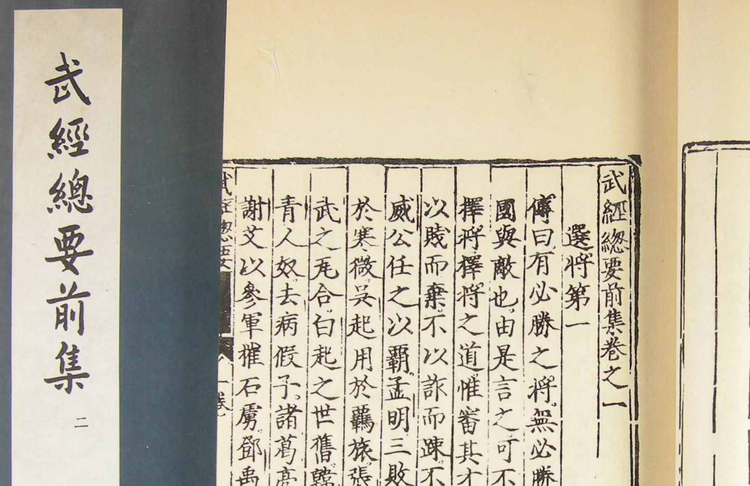 武經總要前集
二
武經總要前集卷之一
選將第一
傳曰有必勝之將無必勝
國與敵也由是言之可不
擇將擇將之道惟審其才
以賤而棄不以詐而疎不
威公任之以霸孟明三敗
於寒微吳起用於羈旅張
武之死合白起之世舊韓
青人奴去病假子諸葛亮
謝艾以參軍摧石虜鄧禹
武經總要
一卷